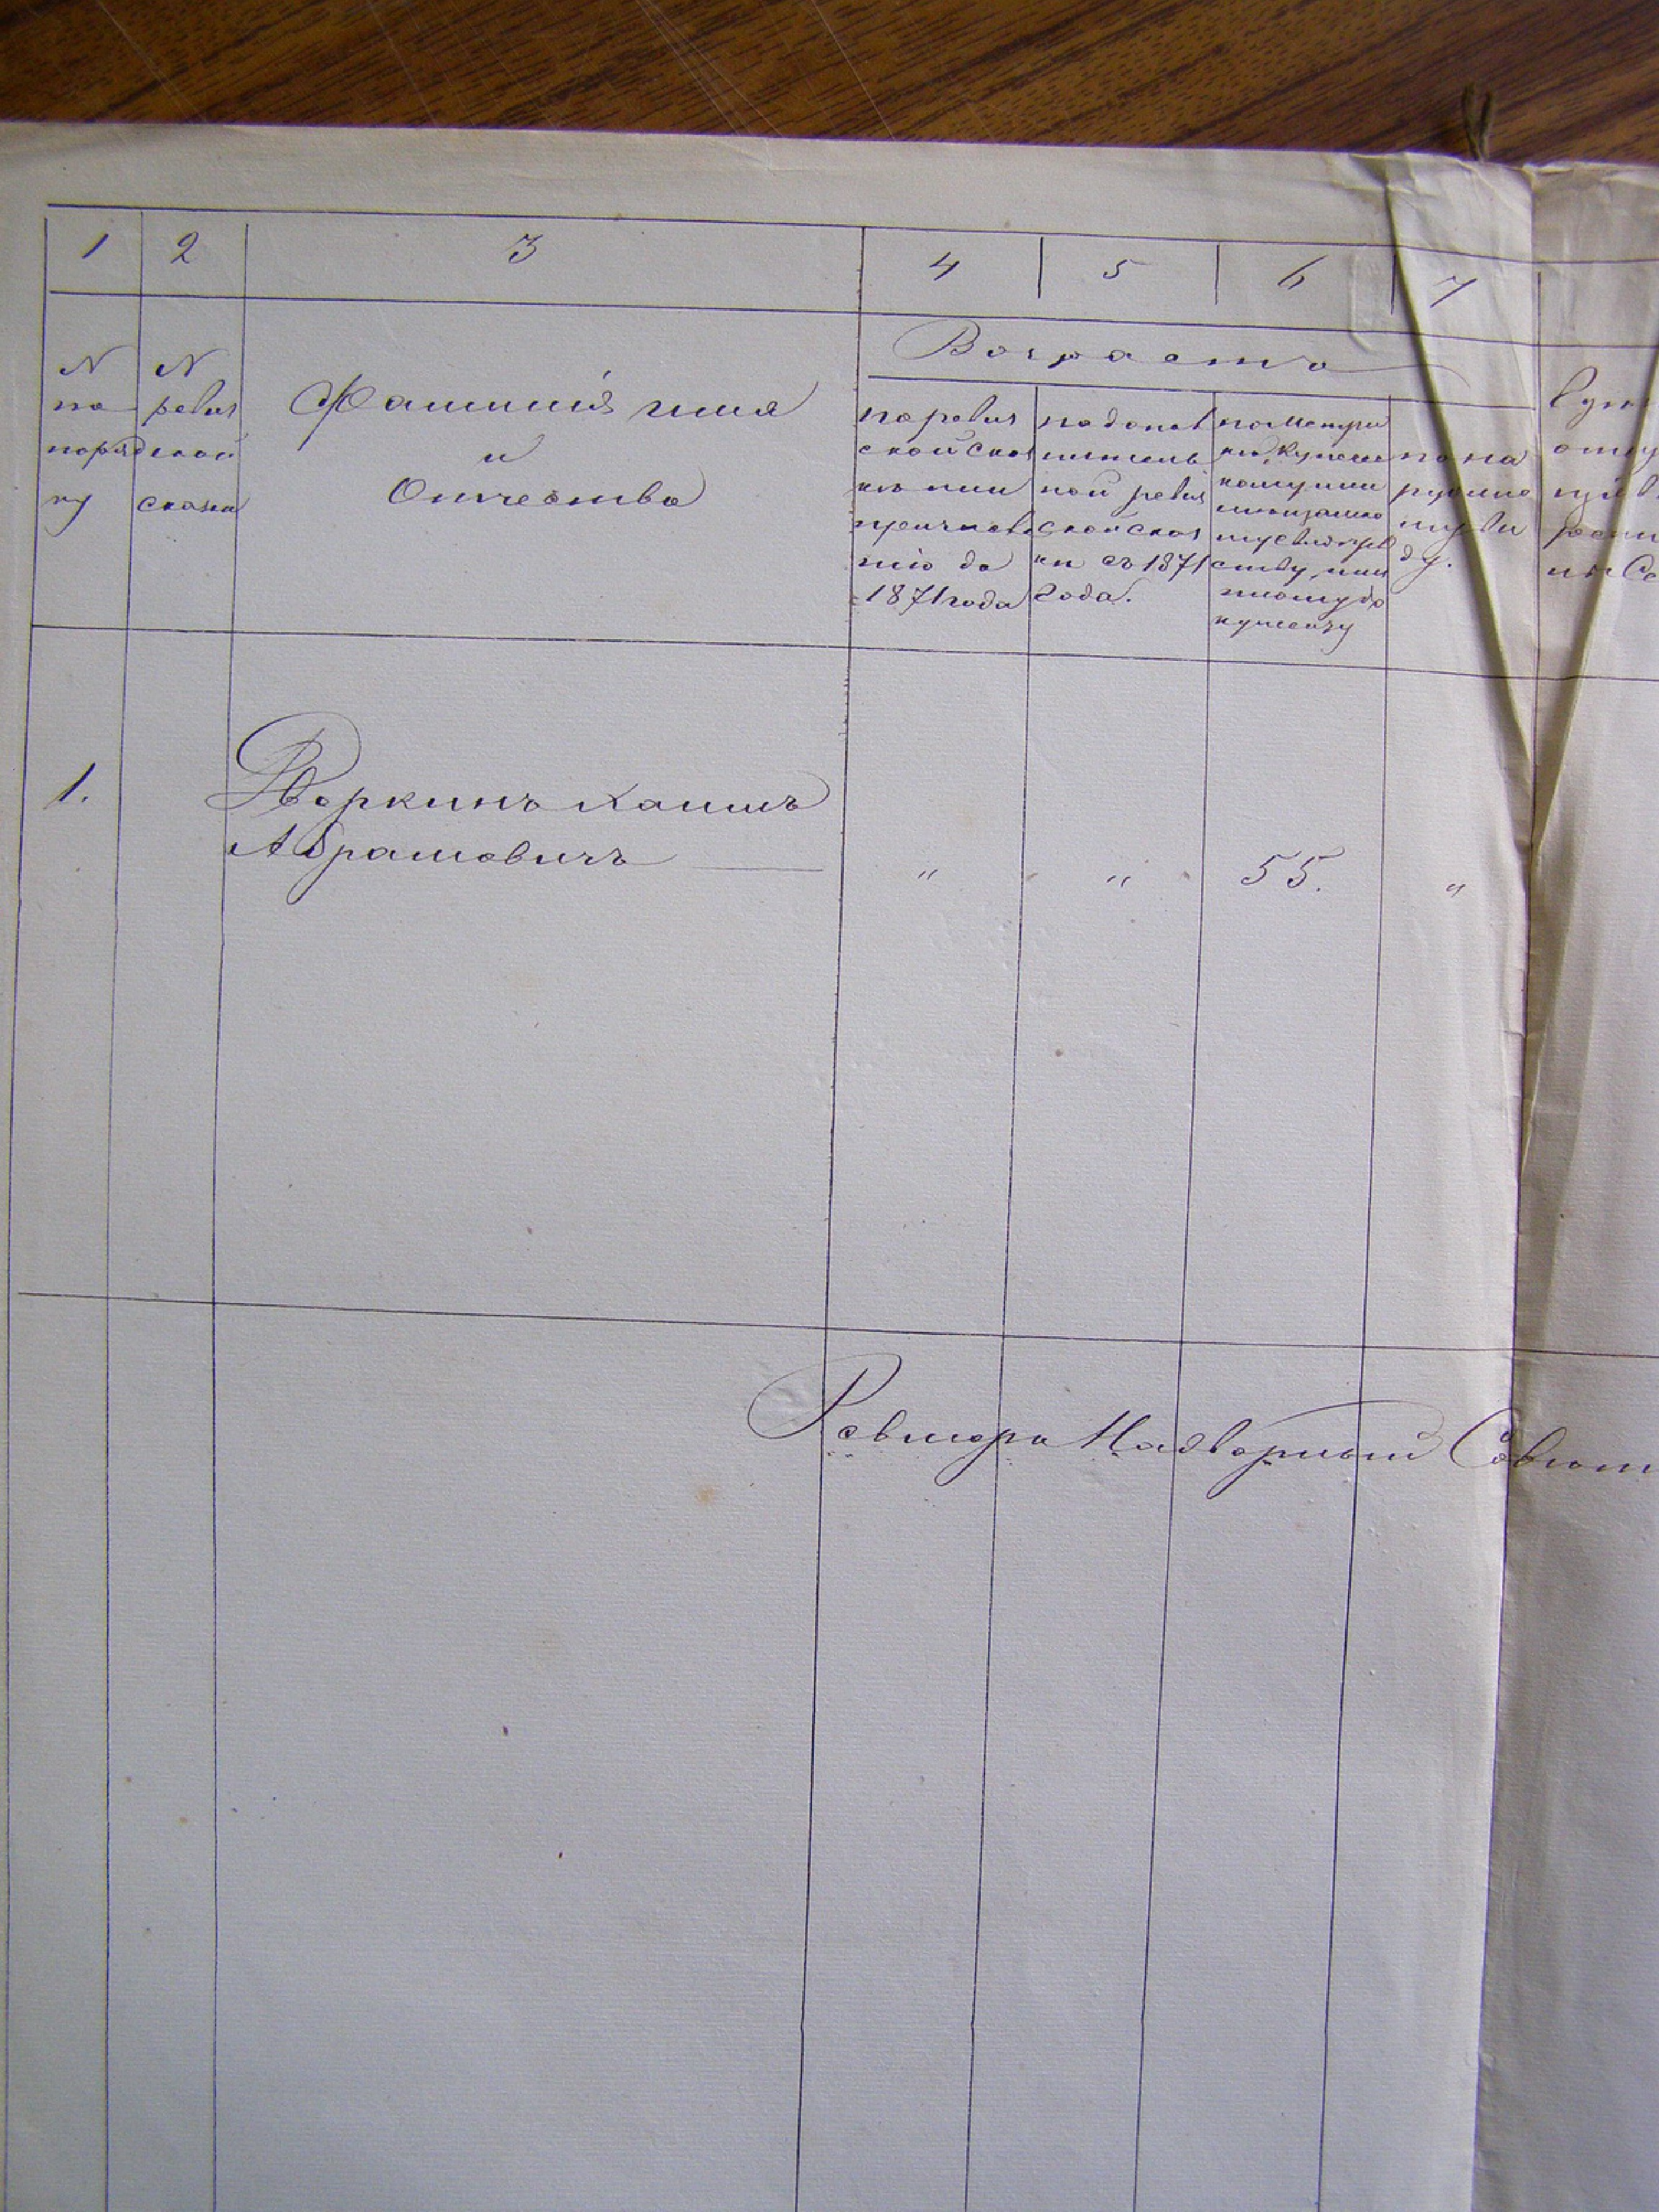 1 2 3 4 5 6 7
N
по
поряд
ку
N
ревиз
ской
сказки
Фамилія имя
и
Отчество
Возрастъ
по ревиз
ской сказ
къ или
причисле
нію до
1871 года
по допол
нитель
ной ревиз
ской сказ
ки съ 1871
года.
по Метри
ки, Купече
или
или
документу
по на
ружно
му ви
ду.
1.
Дворкинъ Хаимъ
Абрамовичъ
" " 55. "
Надворный Совѣтн